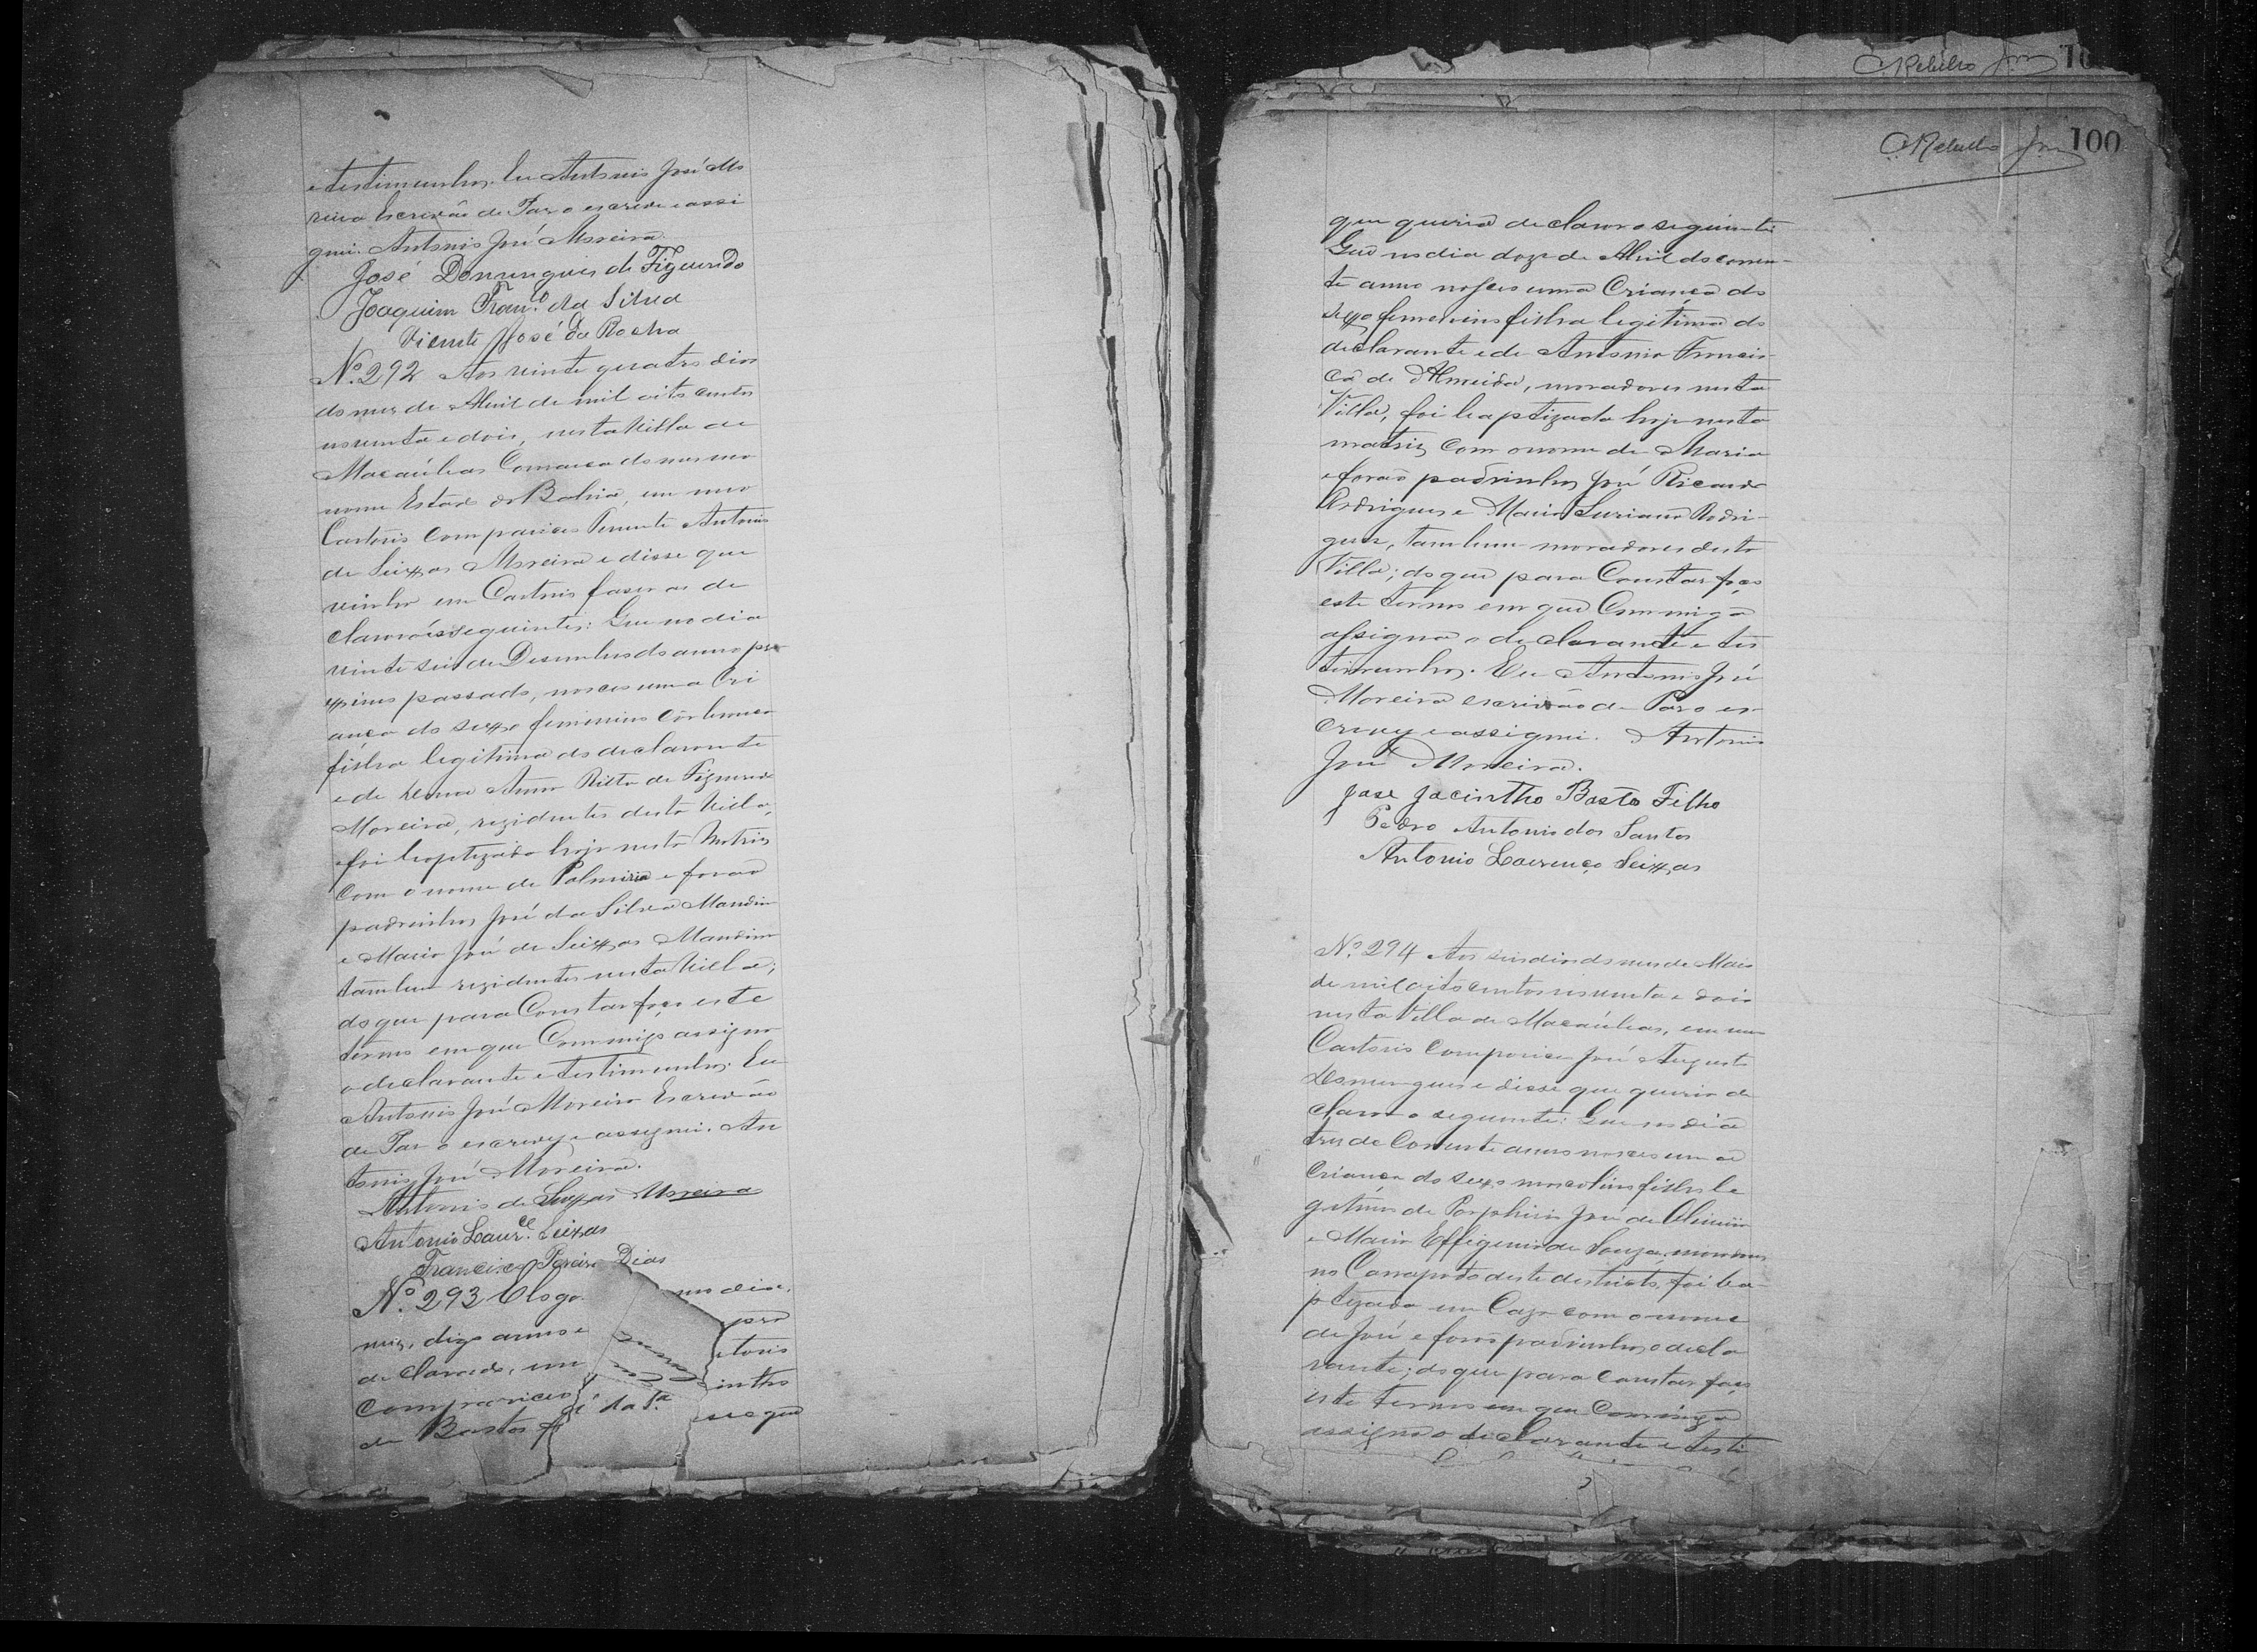 e testimunhas. Eu Antonio José Mo
reira Escrivão de Paz o escrevi e assi
gnei. Antonio José Moreira.
José Domingues de Figueredo
Joaquim Franc.º da Silva
Vicente José da Rocha
Nº. 292 Aos vinte quatro dias
do mes de Abril de mil oito centos
noventa e dois, nesta Villa de
Macaúbas Comarca do mesmo
nome Estado da Bahia, em meu
Cartorio compareceo Tenente Antonio
de Seixas Moreira e disse que
vinha em Cartorio faser as de
clarações seguintes: Que no dia
vinte seis de Desembro do anno pro
ximo passado, nasceo uma Cri
ança do sexo feminino côr branca
filha legitima do declarante
e de Dona Anna Rita de Figueredo
Moreira, rezidentes desta Villa,
foi baptizada hoje nesta Matriz
com o nome de Palmira e forão
padrinhos José da Silva Mandim
e Maria José de Seixas Mandim
tambem rezidentes nesta Villa;
do que para Constar faço este
termo em que Commigo assigna
o declarante e testimunhas. Eu
Antonio José Moreira Escrivão
de Paz o escrevy e assignei. An
tonio José Moreira.
Antonio de Seixas Moreira
Antonio Laur.ço Seixas
Francisco Pereira Dias
Nº. 293 Aos
mez, digo anno e
declarado, em
compareceo
de Bastos
dia,
torio
intho
sse que
Rebello Jor 10
Rebello Jor 100
que queria declarar o seguinte
Que no dia doze de Abril do corren-
te anno nasceo uma Criança do
sexo femenino filha legitima do
declarante e de Antonia Francis-
ca de Almeida, moradores nesta
Villa, foi baptizada hoje nesta
matriz com o nome de Maria
e forão padrinhos José Ricardo
Rodrigues e Maria Suriana Rodri-
gues, tambem moradores desta
Villa; do que para Constar faço
este termo em que Commigo
assigna o declarante e tes
timunhas. Eu Antonio José
Moreira escrivão de Paz o es-
crevy e assignei. Antonio
José Moreira.
Jose Jacintho Basto Filho
Pedro Antonio dos Santos
Antonio Lourenço Seixas
Nº. 294 Aos seis dias do mes de Maio
de mil oito centos noventa e dois
nesta Villa de Macaúbas, em meu
Cartorio compareceo José Augusto
Domingues e disse que queria de
clarar o seguinte: Que no dia
tres do Corrente anno nasceo uma
Criança do sexo masculino filho le
gitimo de Porphirio José de Oliveira
e Maria Effigenia de Souza, moradores
no Carrapato deste destricto, foi ba-
ptizado em Caza com o nome
de José e forão padrinhos o decla
rante; do que para constar faço
este termo em que Commigo
assigna o declarante e testi